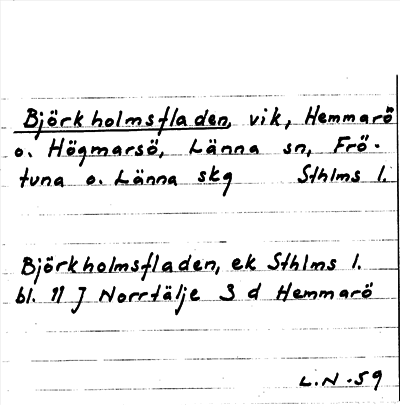 Björkholmsfladen, vik, Hemmarö
o. Högmarsö, Länna sn, Frö-
tuna o. Länna skg Sthlms l.
Björkholmsfladen, ek Sthlms l.
bl. 11 J Norrtälje 3 d Hemmarö
L.N.-59